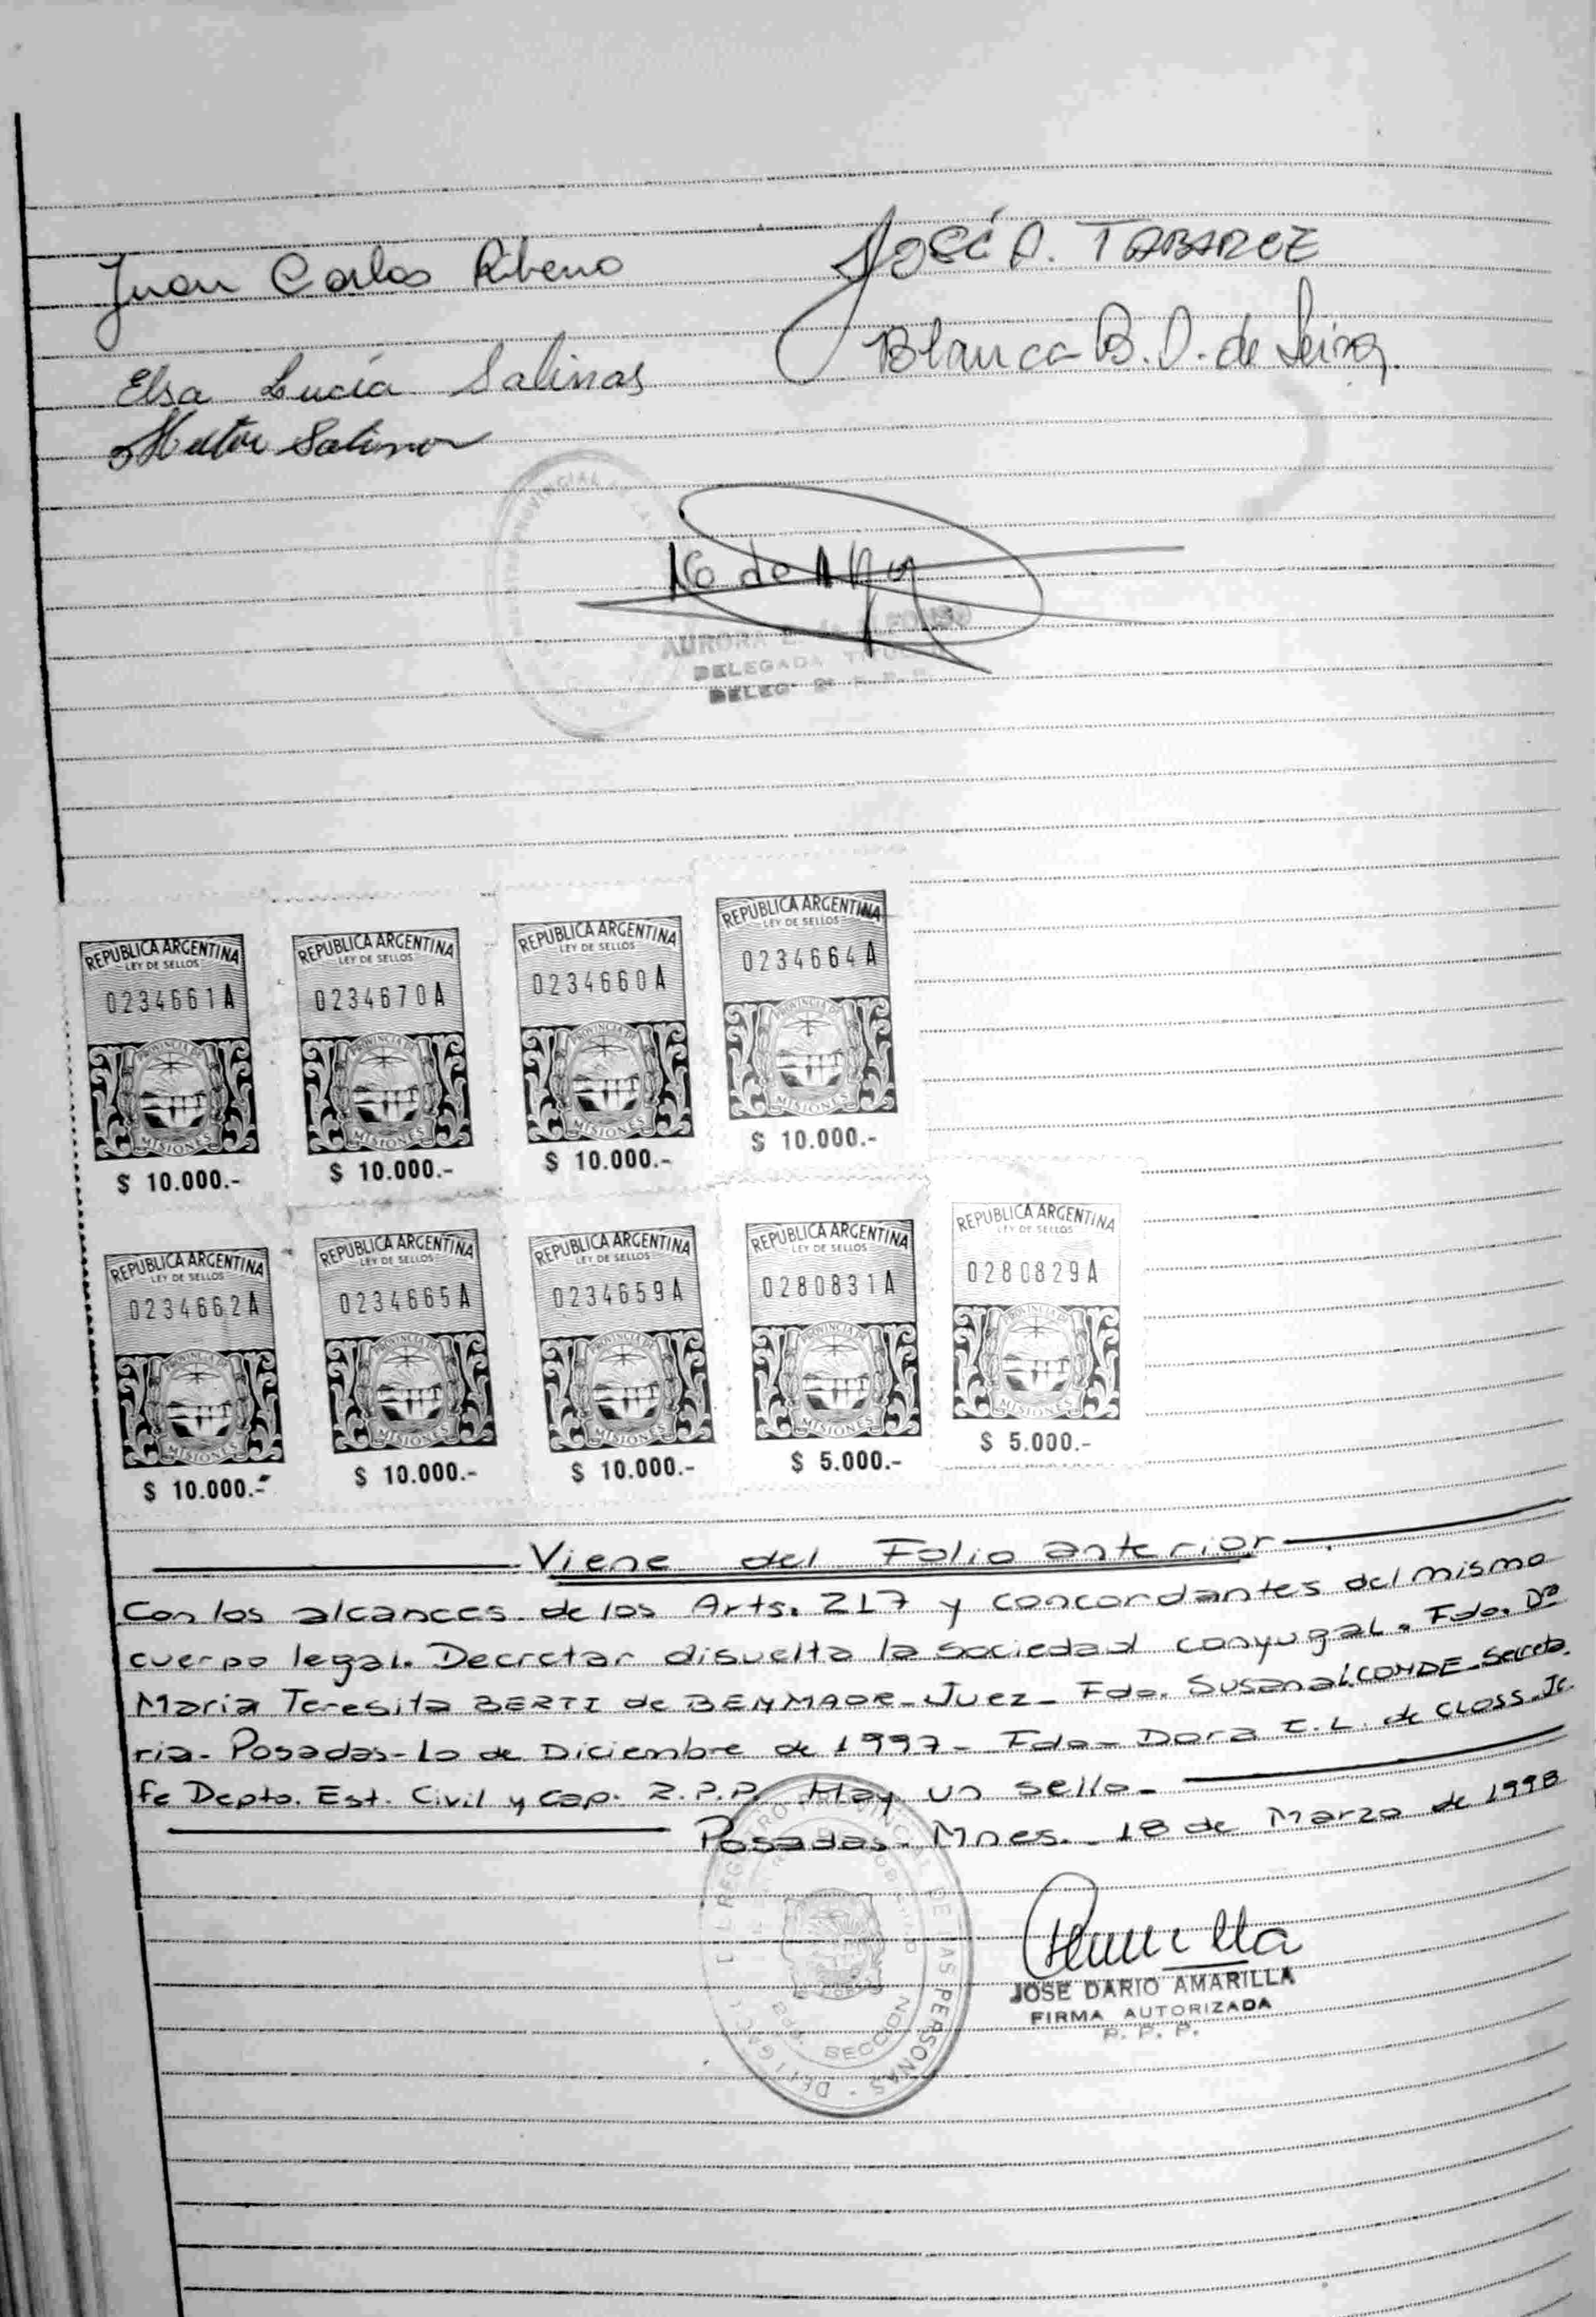 Juan Carlos Ribeno
JOSÉ A. TABAREZ
Elsa Lucía Salinas
Blanca B. D. de
Salinas
AURORA
DELEGADA
DELEG.
REPUBLICA ARGENTINA
LEY DE SELLOS
0234661A
PROVINCIA DE
MISIONES
$ 10.000.-
REPUBLICA ARGENTINA
LEY DE SELLOS
0234670A
PROVINCIA DE
MISIONES
$ 10.000.-
REPUBLICA ARGENTINA
LEY DE SELLOS
0234660A
PROVINCIA DE
MISIONES
$ 10.000.-
REPUBLICA ARGENTINA
LEY DE SELLOS
0234664A
PROVINCIA DE
MISIONES
$ 10.000.-
REPUBLICA ARGENTINA
LEY DE SELLOS
0234662A
PROVINCIA DE
MISIONES
$ 10.000.-
REPUBLICA ARGENTINA
LEY DE SELLOS
0234665A
PROVINCIA DE
MISIONES
$ 10.000.-
REPUBLICA ARGENTINA
LEY DE SELLOS
0234659A
PROVINCIA DE
MISIONES
$ 10.000.-
REPUBLICA ARGENTINA
LEY DE SELLOS
0280831A
PROVINCIA DE
MISIONES
$ 5.000.-
REPUBLICA ARGENTINA
LEY DE SELLOS
0280829A
PROVINCIA DE
MISIONES
$ 5.000.-
Viene del Folio anterior
Con los alcances de los Arts. 217 y concordantes del mismo
cuerpo legal. Decretar disuelta la sociedad conyugal. Fdo. Dª
María Teresita BERTI de BENMAOR- Juez- Fdo. Susana L. CONDE- Secreta
ria- Posadas- 10 de Diciembre de 1997- Fdo- Dora I. L. de CLOSS- Je
fe Depto. Est. Civil y Cap. R.P.P. Hay un sello-
Posadas- Mnes.- 18 de Marzo de 1998
REGISTRO PROVINCIAL DE LAS PERSONAS
SECCION
JOSE DARIO AMARILLA
FIRMA AUTORIZADA
R. P. P.